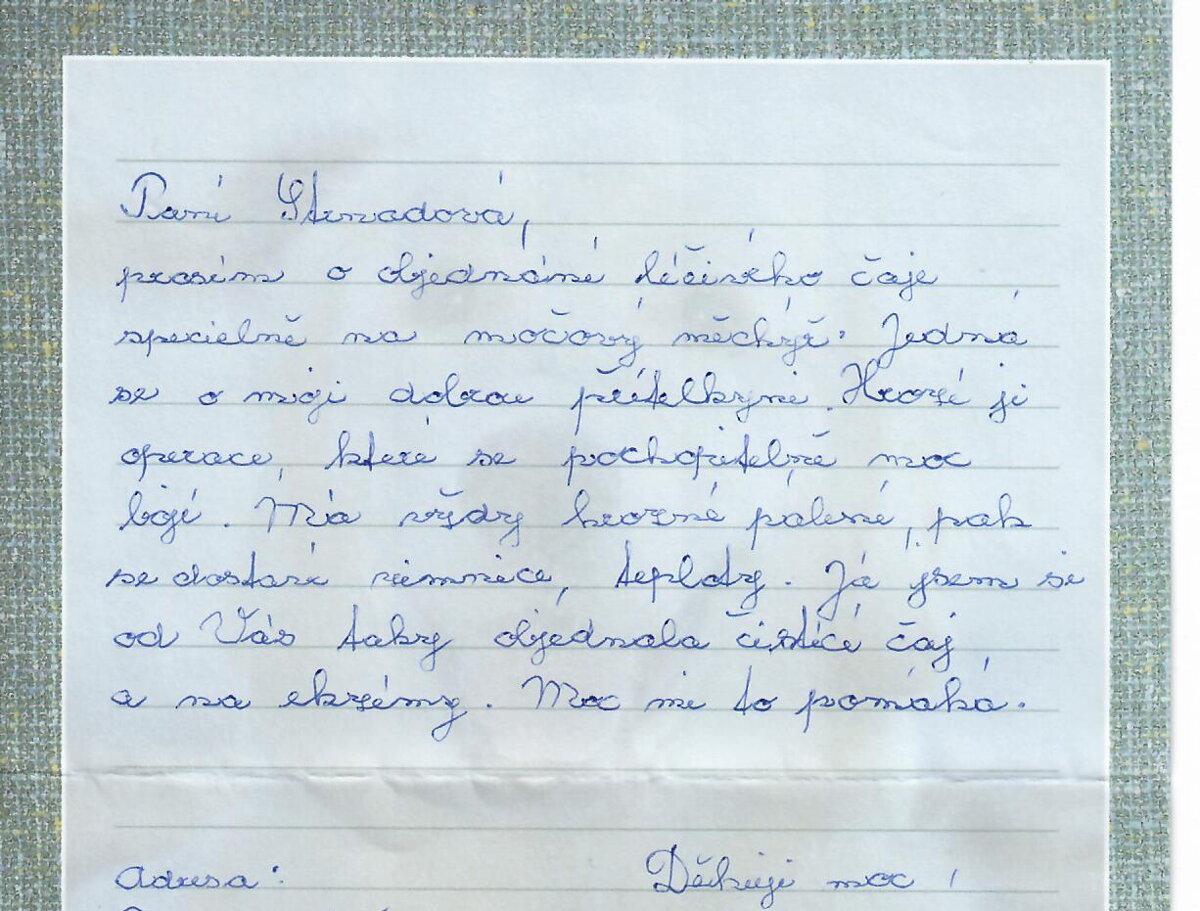 Paní Stewadová,
prosím o objednání léčivého čaje
specielně na močový měchýř. Jedná
se o moji dobrou přítelkyni. Hrozí jí
operace, které se pochopitelně moc
bojí. Má vždy hrozné pálení, pak
se dostaví zimnice, teploty. Já jsem si
od Vás taky objednala čistící čaj
a na ekzémy. Moc mi to pomáhá.
Adresa:
Děkuji moc!